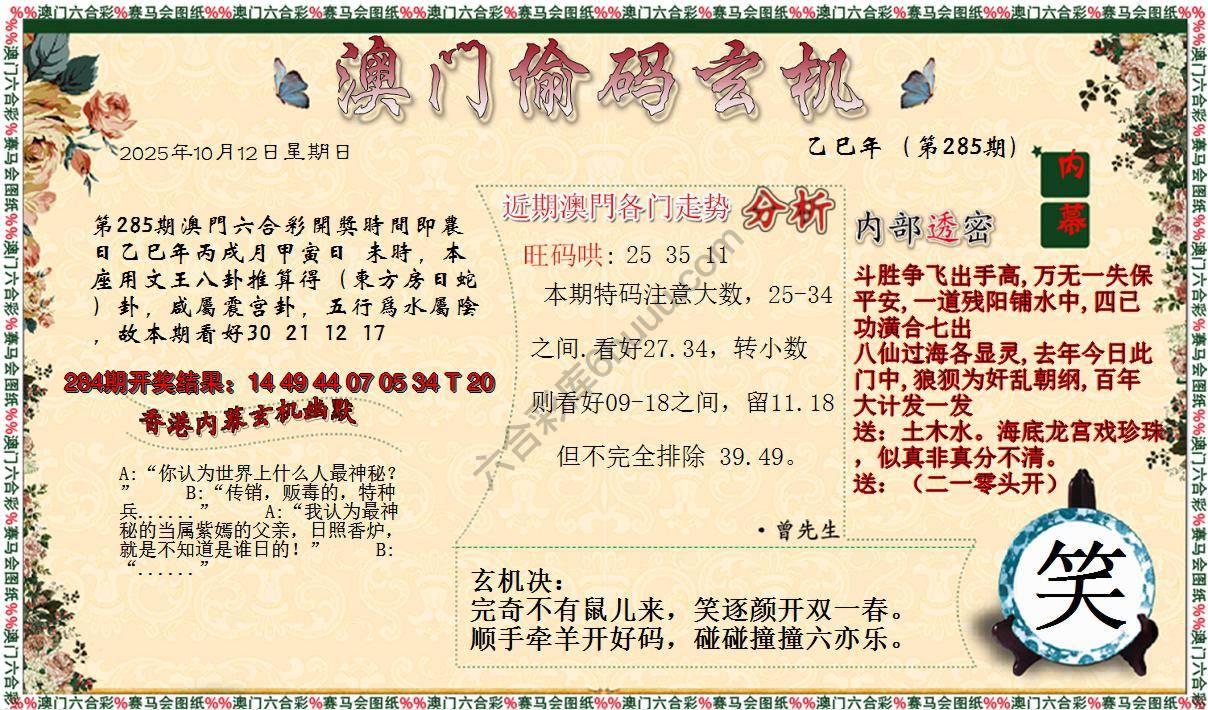 %%澳门六合彩%赛马会图纸%%澳门六合彩%赛马会图纸%%澳门六合彩%赛马会图纸%%澳门六合彩%赛马会图纸%%澳门六合彩%赛马会图纸%%澳门六合彩%赛马会图纸%%
澳门偷码玄机
2025年10月12日星期日
乙巳年（第285期）
内
幕
第285期澳門六合彩開獎時間即農
日乙巳年丙戌月甲寅日 未時，本
座用文王八卦推算得（東方房日蛇
）卦，咸屬震宫卦，五行爲水屬陰
，故本期看好30 21 12 17
284期开奖结果：14 49 44 07 05 34 T 20
香港内幕玄机幽默
A:“你认为世界上什么人最神秘?
” B:“传销，贩毒的，特种
兵......” A:“我认为最神
秘的当属紫嫣的父亲，日照香炉，
就是不知道是谁日的！” B:
“......”
近期澳門各门走势 分析
旺码哄: 25 35 11
本期特码注意大数，25-34
之间.看好27.34，转小数
则看好09-18之间，留11.18
但不完全排除 39.49。
·曾先生
内部透密
斗胜争飞出手高,万无一失保
平安,一道残阳铺水中,四已
功潢合七出
八仙过海各显灵,去年今日此
门中,狼狈为奸乱朝纲,百年
大计发一发
送：土木水。海底龙宫戏珍珠
，似真非真分不清。
送：（二一零头开）
玄机决：
完奇不有鼠儿来，笑逐颜开双一春。
顺手牵羊开好码，碰碰撞撞六亦乐。
笑
%%澳门六合彩%赛马会图纸%%澳门六合彩%赛马会图纸%%澳门六合彩%赛马会图纸%%澳门六合彩%赛马会图纸%%澳门六合彩%赛马会图纸%%澳门六合彩%赛马会图纸%%